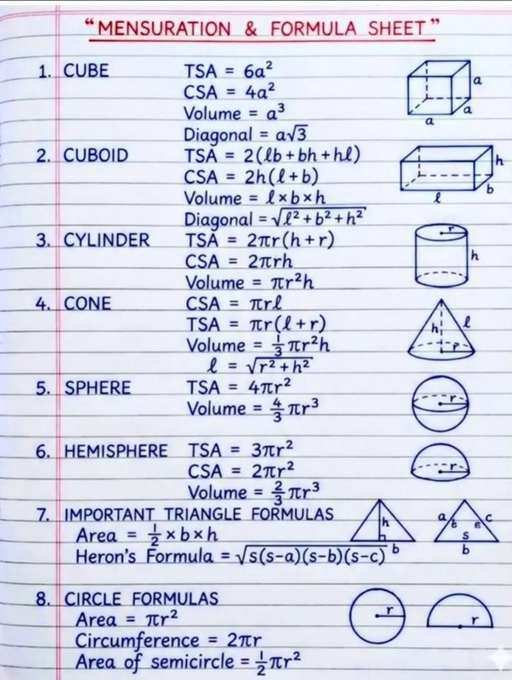 "MENSURATION & FORMULA SHEET"
1. CUBE TSA = 6a²
CSA = 4a²
Volume = a³
Diagonal = a√3
a
a
a
2. CUBOID TSA = 2(ℓb+bh+hℓ)
CSA = 2h(ℓ+b)
Volume = ℓ×b×h
Diagonal = √ℓ²+b²+h²
h
b
ℓ
3. CYLINDER TSA = 2πr(h+r)
CSA = 2πrh
Volume = πr²h
r
h
4. CONE CSA = πrℓ
TSA = πr(ℓ+r)
Volume = 1/3 πr²h
ℓ = √r²+h²
h
ℓ
r
5. SPHERE TSA = 4πr²
Volume = 4/3 πr³
r
6. HEMISPHERE TSA = 3πr²
CSA = 2πr²
Volume = 2/3 πr³
r
7. IMPORTANT TRIANGLE FORMULAS
Area = 1/2 × b × h
Heron's Formula = √s(s-a)(s-b)(s-c)
h
b
a
c
s
b
8. CIRCLE FORMULAS
Area = πr²
Circumference = 2πr
Area of semicircle = 1/2 πr²
r
r